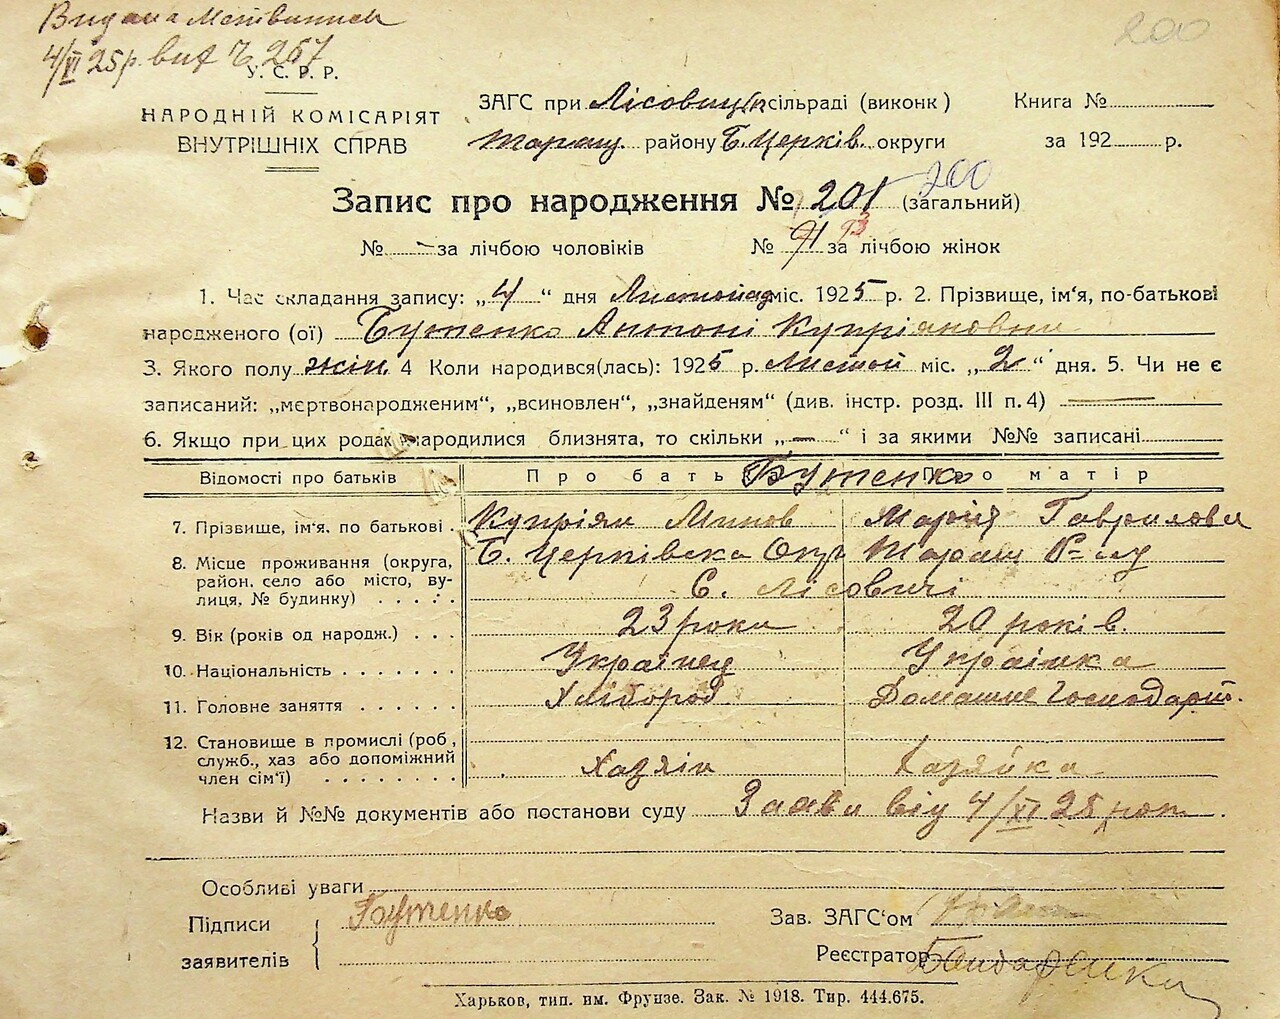 Видана Метвиписк
4/VI 25р. вид Ч 267
200
У. С. Р. Р.
НАРОДНІЙ КОМІСАРІЯТ
ВНУТРІШНІХ СПРАВ
ЗАГС при Лісовицьк сільраді (виконк)
Таращ. району Б. Церків. округи
Книга №
за 192 р.
Запис про народження № 201 200 (загальний)
№ — за лічбою чоловіків № 91 93 за лічбою жінок
1. Час складання запису: „4“ дня Листопад міс. 1925 р. 2. Прізвище, ім‘я, по-батькові
народженого (ої) Бутенко Антоні Купріяновни
3. Якого полу жін. 4 Коли народився(лась): 1925 р. Листоп міс. „2“ дня. 5. Чи не є
записаний: „мєртвонародженим“, „всиновлен“, „знайденям“ (див. інстр. розд. III п. 4) —
6. Якщо при цих родах народилися близнята, то скільки „—“ і за якими №№ записані
Відомості про батьків Про батька Бутенко Про матір
7. Прізвище, ім‘я, по батькові Купріян Минов Марія Гаврилова
8. Місце проживання (округа, Б. Церківська Окр Таращ Р-ну
район, село або місто, ву- С. Лісовичі
лиця, № будинку)
9. Вік (років од народж.) 23 роки 20 років.
10. Національність Українец Українка
11. Головне заняття Хлібороб Домашнє Господарст.
12. Становище в промислі (роб.,
служб., хаз або допоміжний Хазяін Хазяйка
член сім‘ї)
Назви й №№ документів або постанови суду Заява від 4/XI 25 рок
Особливі уваги
Підписи Бутенко
заявителів
Зав. ЗАГС‘ом
Реєстратор Бондаренко
Харьков, тип. им. Фрунзе. Зак. № 1918. Тир. 444.675.